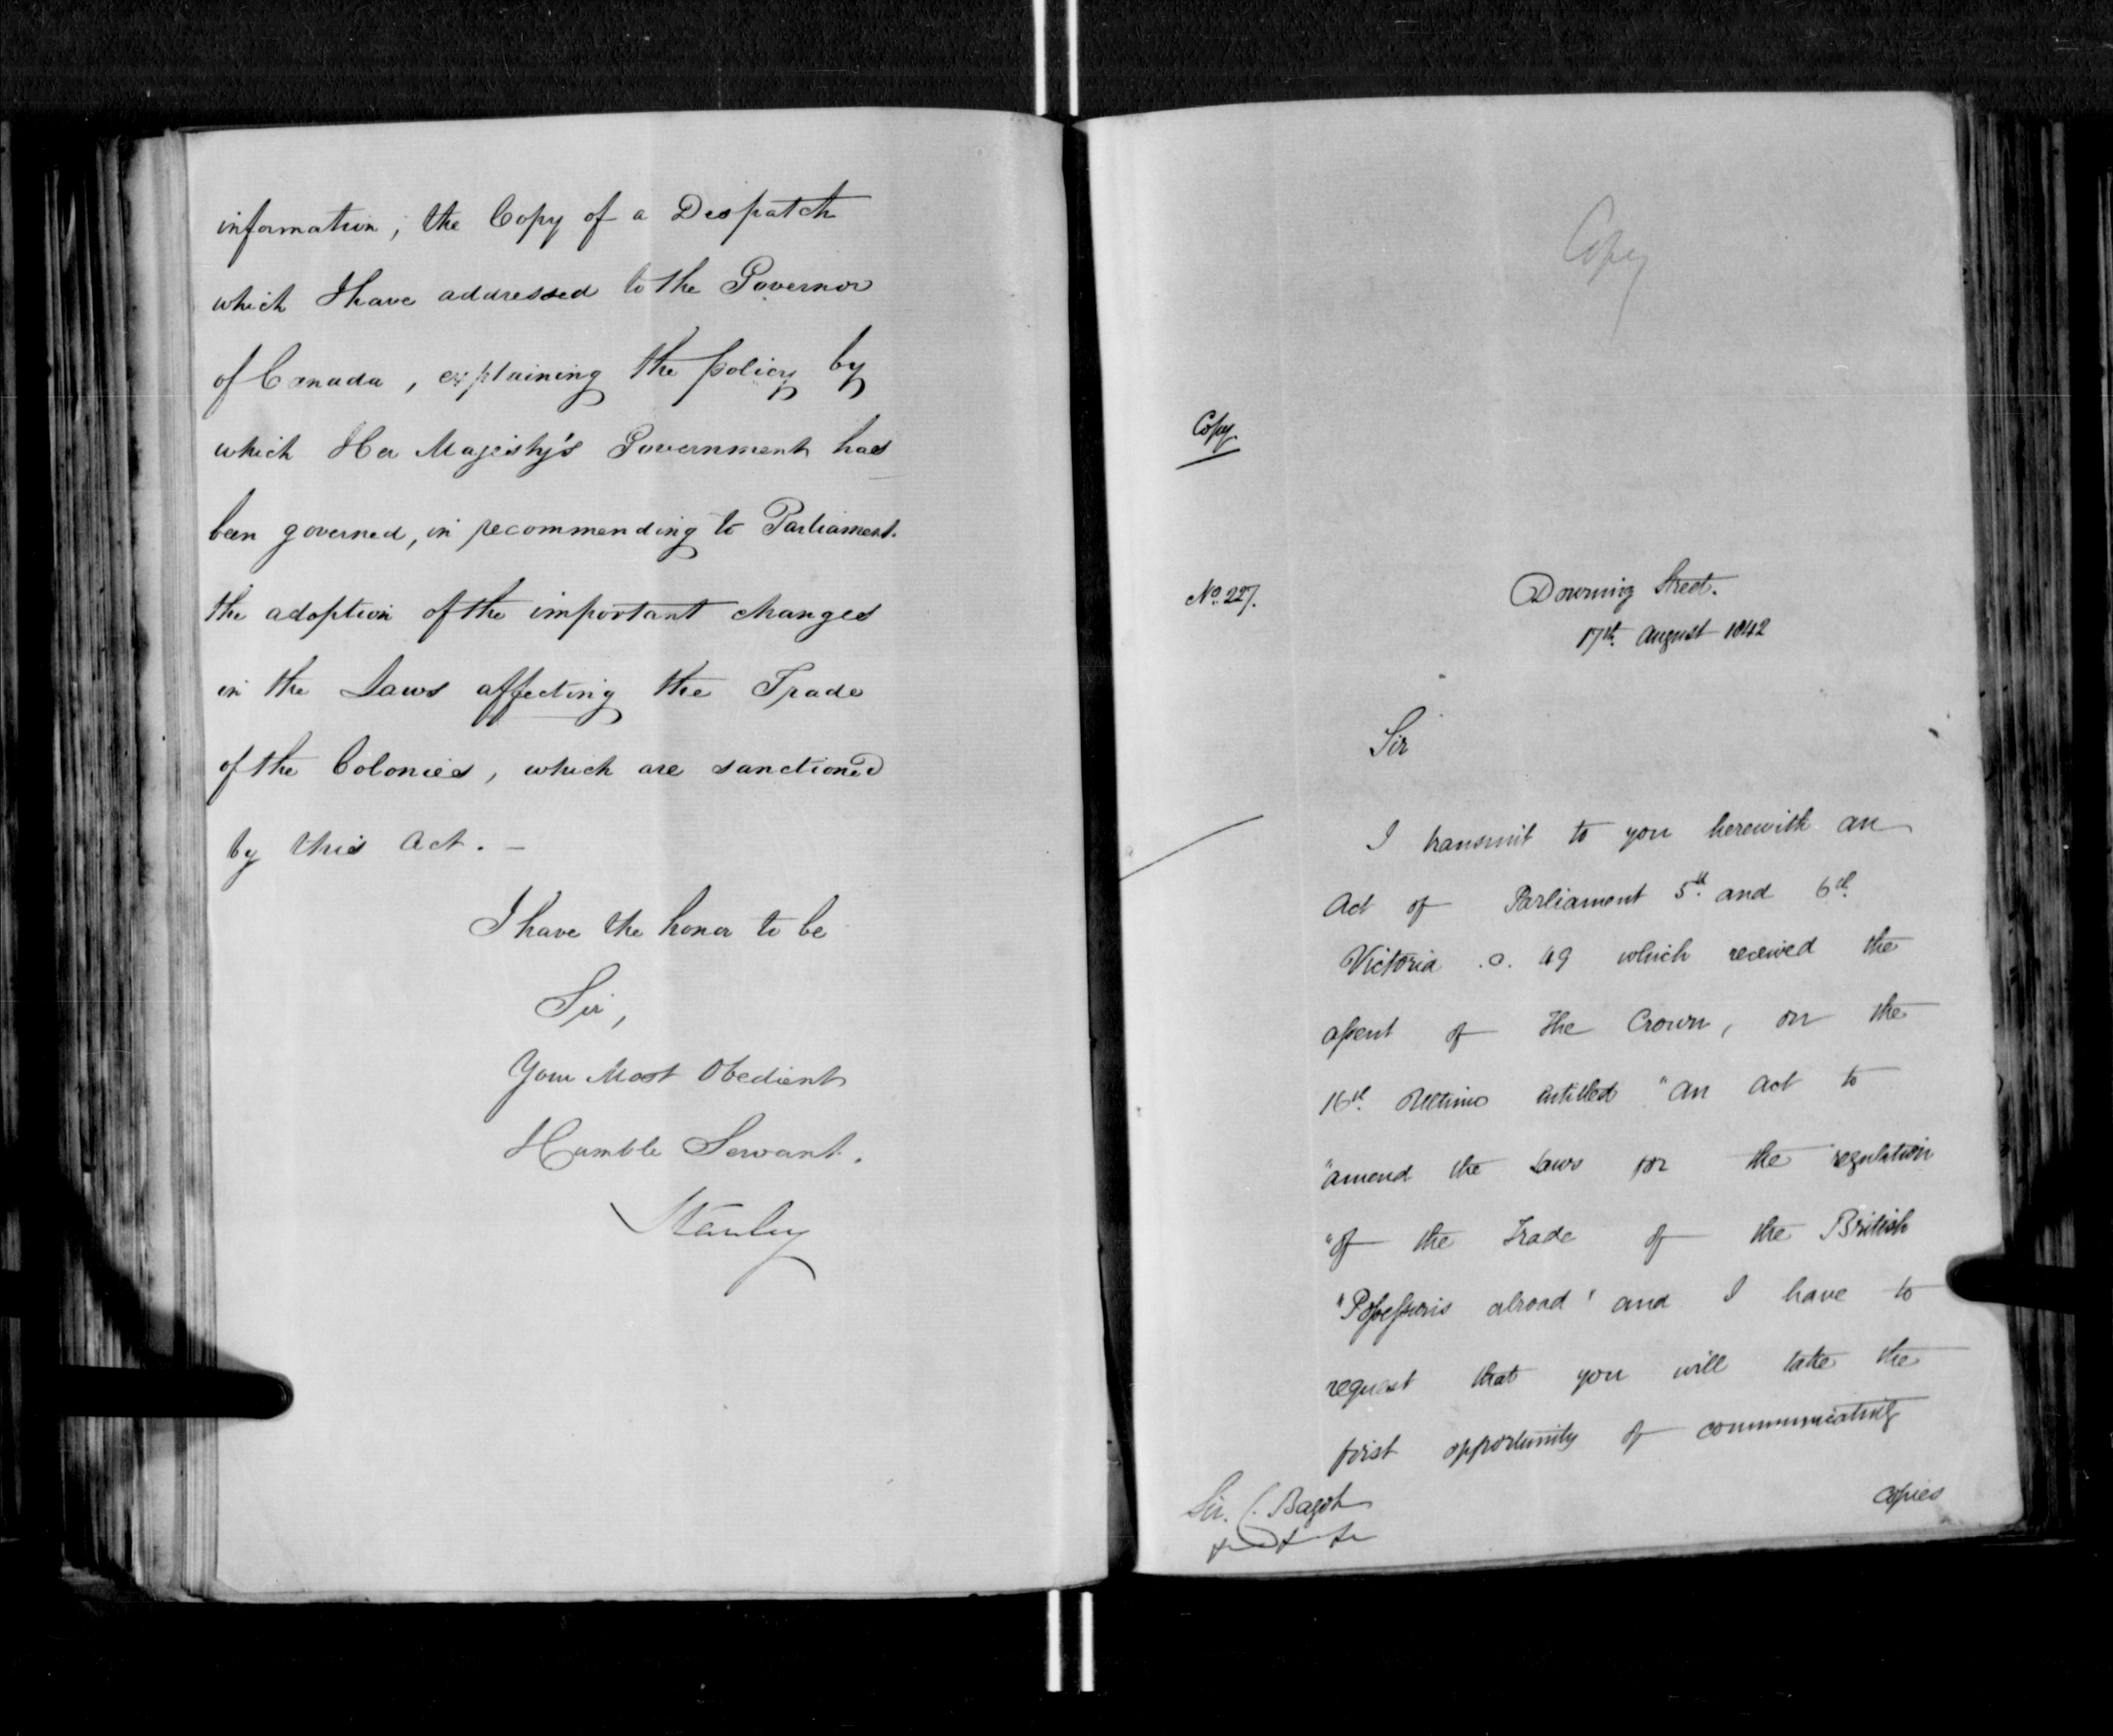 information, the Copy of a Despatch
which I have addressed to the Governor
of Canada, explaining the policy by
which Her Majesty's Government has
been governed, in recommending to Parliament
the adoption of the important changes
in the Laws affecting the Trade
of the Colonies, which are sanctioned
by this Act. –
I have the honor to be
Sir,
Your Most Obedient
Humble Servant.
Stanley
Copy
Copy
No. 227.
Downing Street.
17th August 1842
Sir
I transmit to you herewith an
Act of Parliament 5th and 6th
Victoria c. 49 which received the
assent of the Crown, on the
16th Ultimo entitled "An Act to
"amend the Laws for the regulation
"of the Trade of the British
"Possessions abroad" and I have to
request that you will take the
first opportunity of communicating
copies
Sir C. Bagot